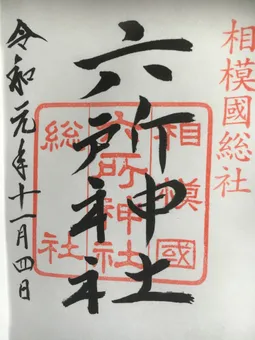 相模國総社
六所神社
相模國
六所神社
総社
令和元年十一月四日